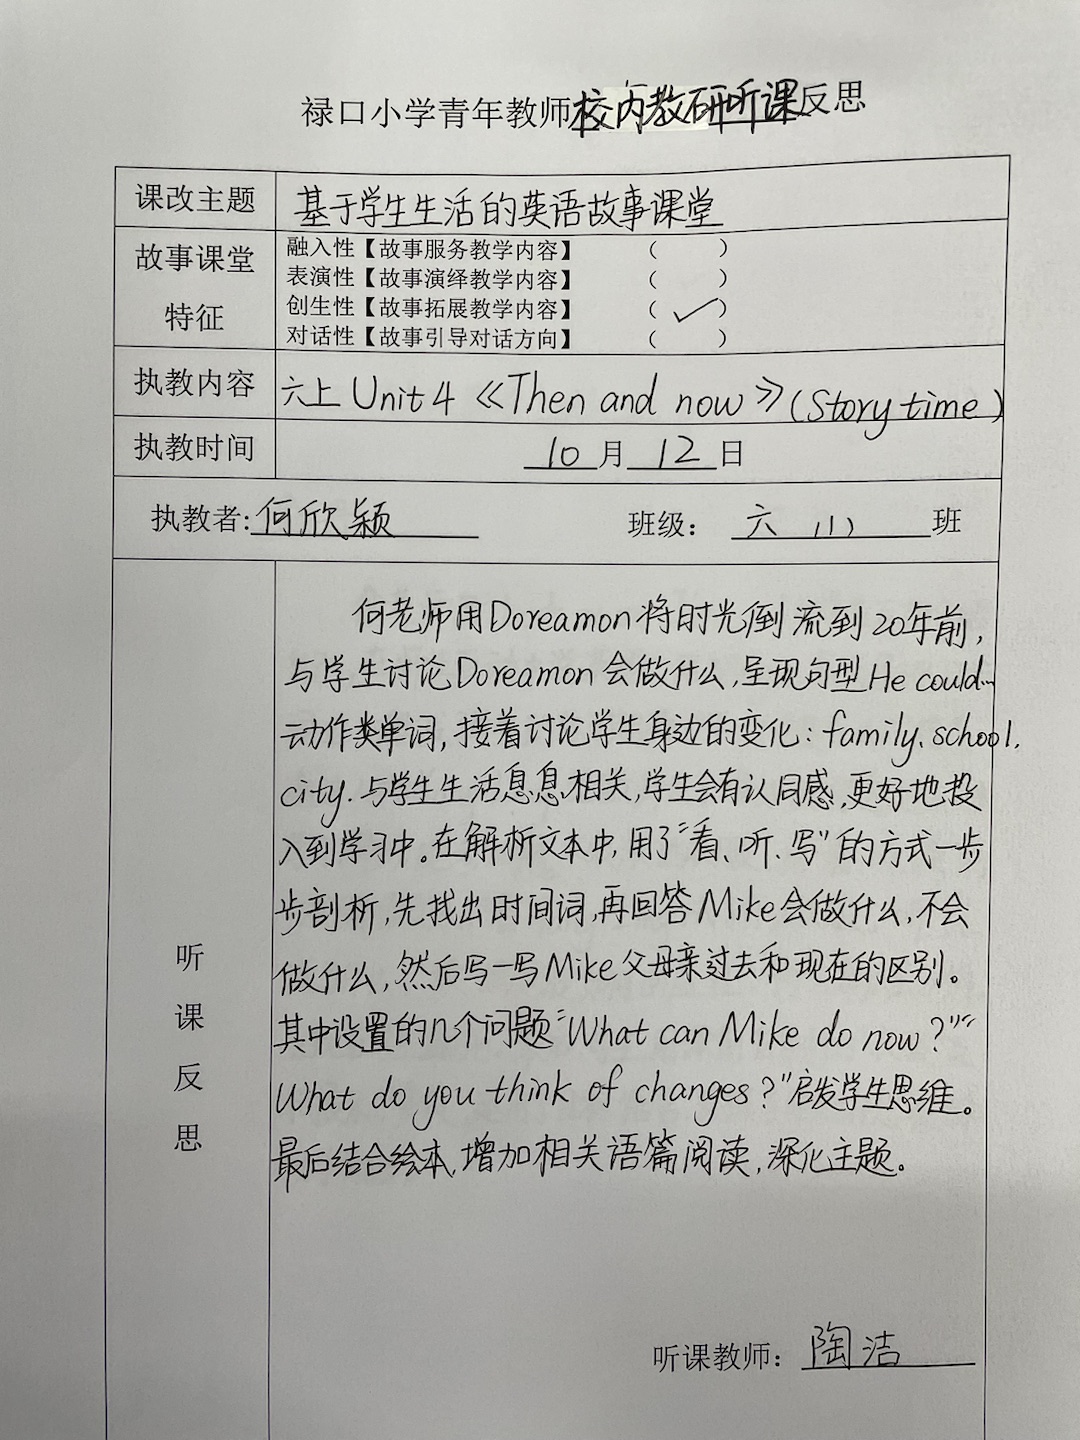 禄口小学青年教师校内教研听课反思
课改主题 基于学生生活的英语故事课堂
故事课堂
特征
融入性【故事服务教学内容】 （ ）
表演性【故事演绎教学内容】 （ ）
创生性【故事拓展教学内容】 （ ✓ ）
对话性【故事引导对话方向】 （ ）
执教内容 六上 Unit 4 《Then and now》(Story time)
执教时间 10 月 12 日
执教者:何欣颖 班级： 六（1） 班
听
课
反
思
何老师用Doreamon将时光倒流到20年前,
与学生讨论Doreamon会做什么,呈现句型He could...
动作类单词,接着讨论学生身边的变化:family、school、
city.与学生生活息息相关,学生会有认同感,更好地投
入到学习中。在解析文本中,用了“看、听、写”的方式一步
步剖析,先找出时间词,再回答Mike会做什么,不会
做什么,然后写一写Mike父母亲过去和现在的区别。
其中设置的几个问题“What can Mike do now?”“
What do you think of changes?”启发学生思维。
最后结合绘本,增加相关语篇阅读,深化主题。
听课教师： 陶洁